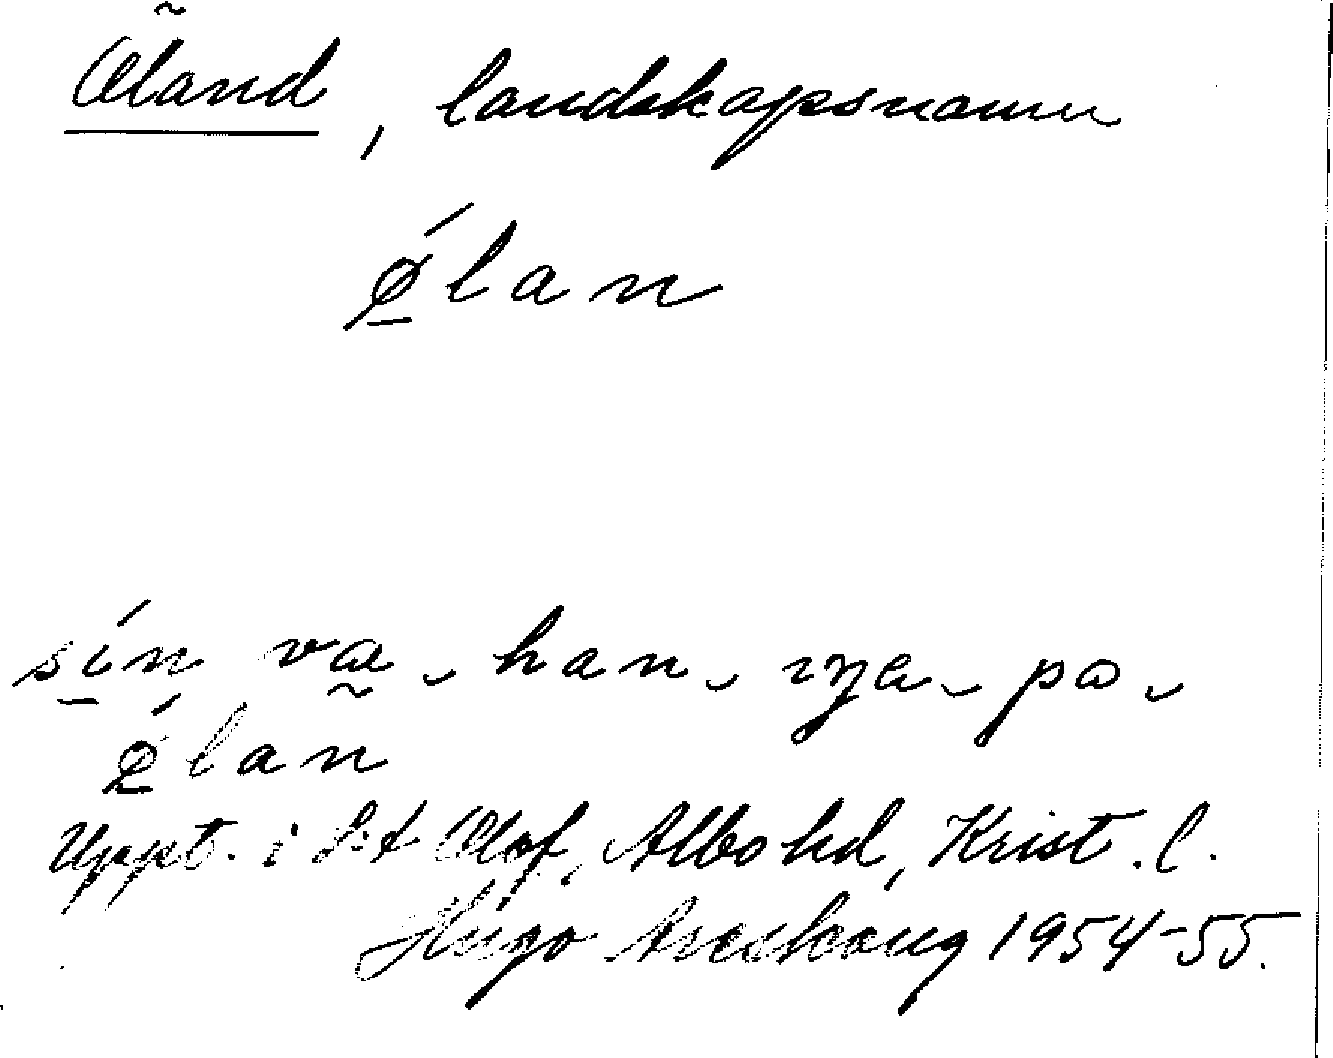 Öland, landskapsnamn
ǿ̱lan
sí̱n va ̮ han ̮ ɩŋa ̮ pa ̮
ǿ̱lan
Uppt. i S:t Olof, Albo hd, Krist. l.
Hugo Areskoug 1954-55.